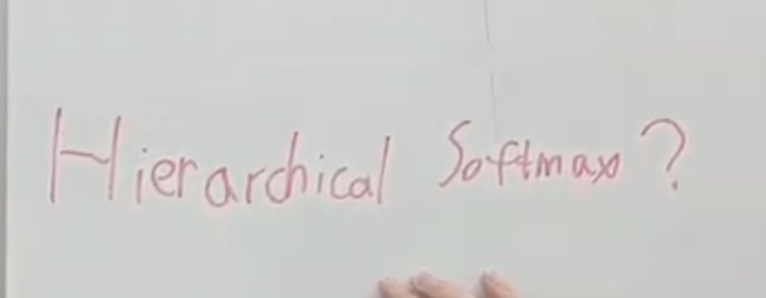 Hierarchical Softmax?